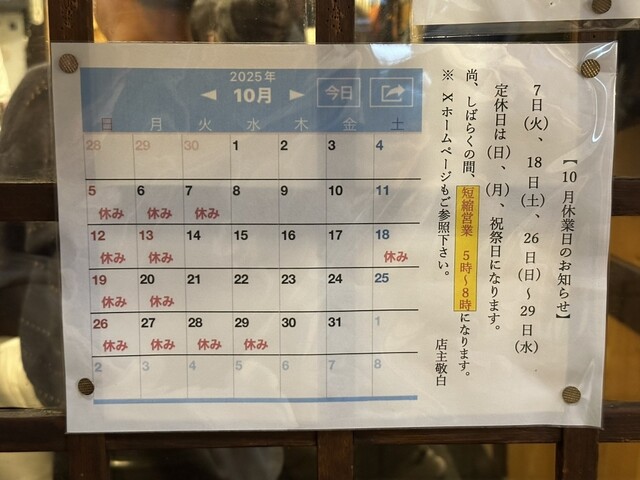 2025年
◀ 10月 ▶ 今日
日 月 火 水 木 金 土
28 29 30 1 2 3 4
5 6 7 8 9 10 11
休み 休み 休み
12 13 14 15 16 17 18
休み 休み 休み
19 20 21 22 23 24 25
休み 休み
26 27 28 29 30 31 1
休み 休み 休み 休み
2 3 4 5 6 7 8
【10月休業日のお知らせ】
7日(火)、18日(土)、26日(日)〜29日(水)
定休日は(日)、(月)、祝祭日になります。
尚、しばらくの間、短縮営業 5時〜8時になります。
※ Xホームページもご参照下さい。
店主敬白